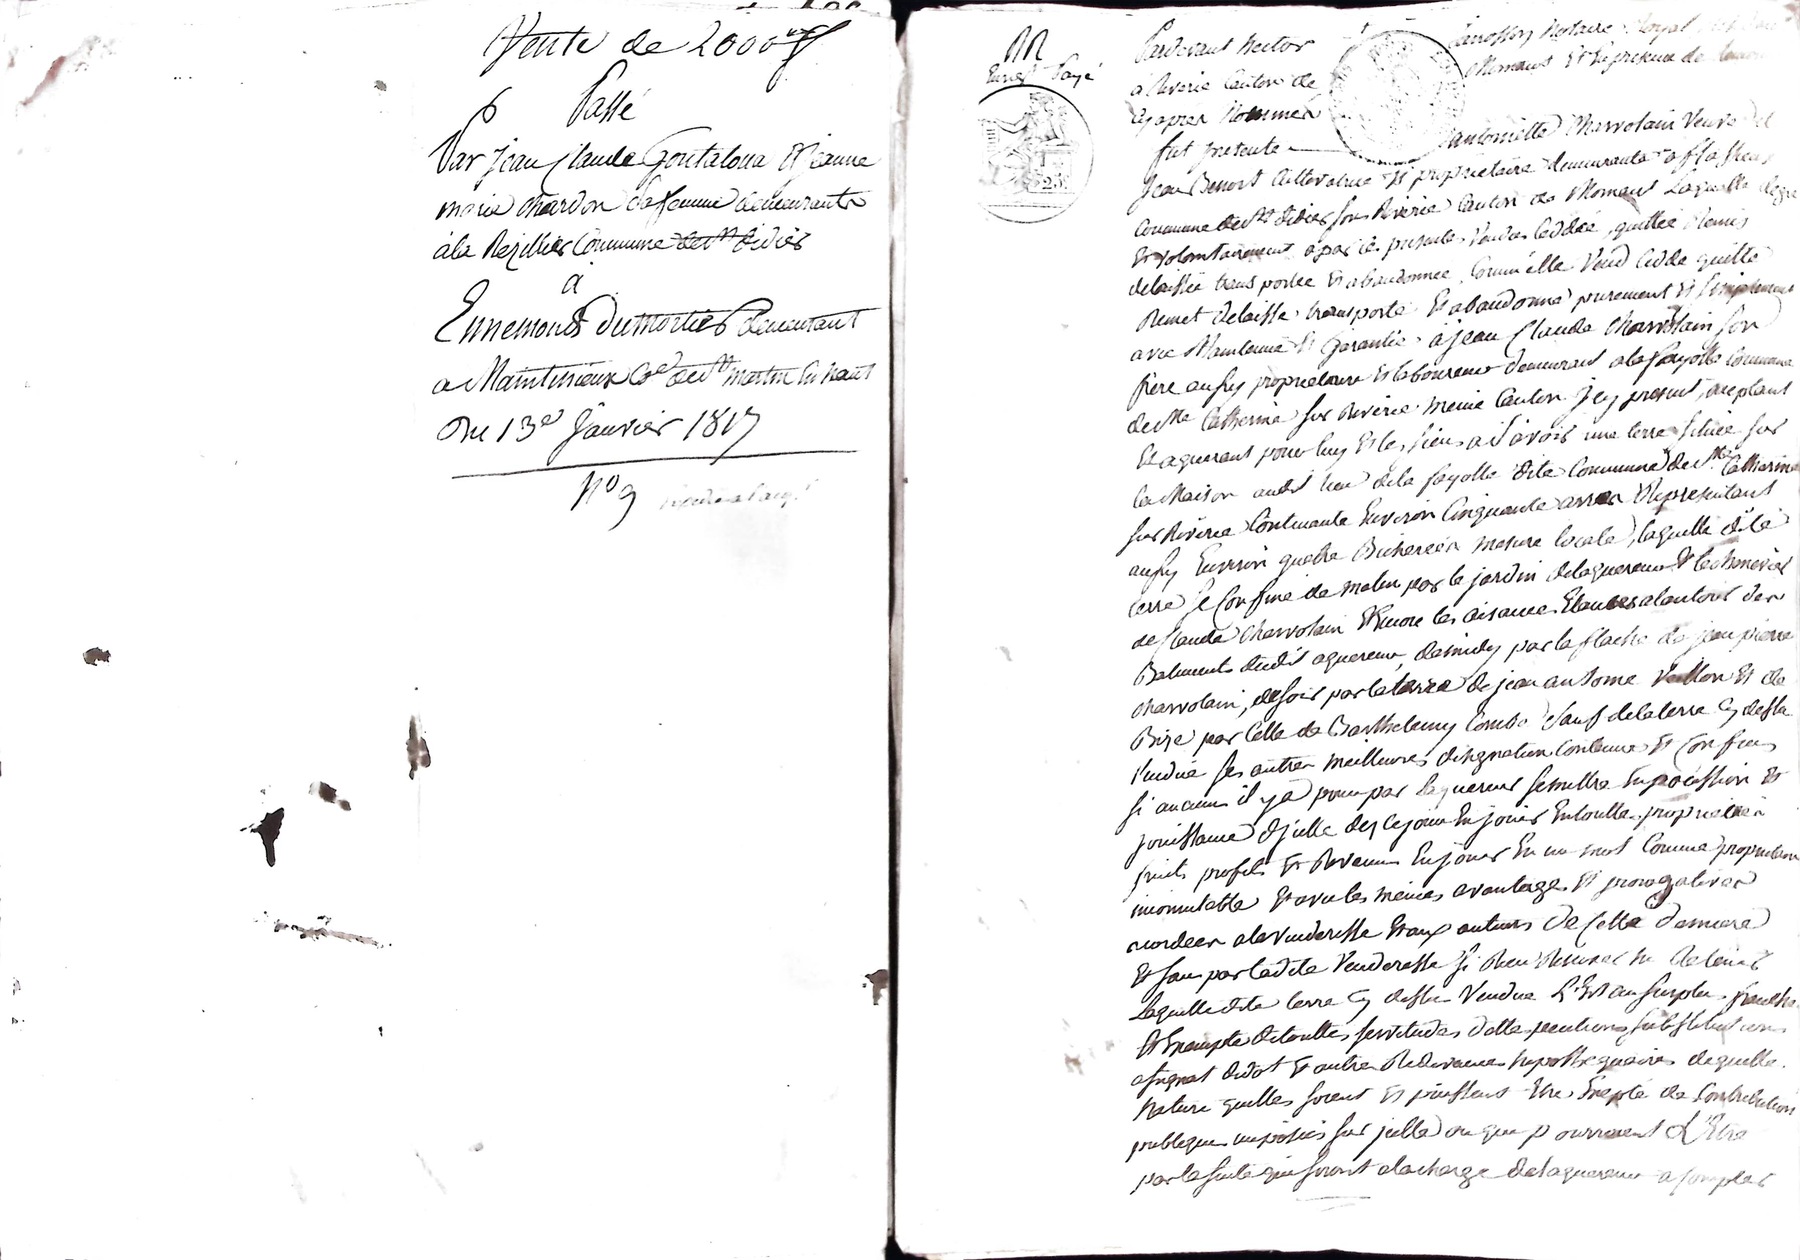 Vente de 2000 ₶
Passé
Par Jean Claude Goutaloua Et jeanne
marie chardon Sa femme demeurants
à la Rézillier Commune de St didier
à
Ennemond dumortier demeurant
a Maintinieux Cne de St martin En haut
Du 13e Janvier 1817
No 9
Pardevant hector Notaire Royal
à Riverie Canton de Mornant Et En présence de
Cy après Nommés
fut présente antoinette Charvolain Veuve de
Jean Benoit Cultivatrice Et propriétaire demeurante a
Commune de St didier sous Riverie Canton de Mornant Laquelle de gré
Et volontairement a par ce présente Vendue Ceddée, quittée Remis
delaissée transportée Et abandonnée, Comm'elle Vend Cedde quitte
Remet delaisse transporte Et abandonne purement Et Simplement
avec Maintenue Et Garantie, à Jean Claude Charvolain son
frère aussy propriétaire Et laboureur demeurant a la fayolle Commune
de Ste Catherine sur Riverie meme Canton Jcy présent, acceptant
Et aquerant pour luy Et les siens a Savoir une terre située sur
la Maison audit lieu de la fayolle dite Commune de Ste Catherine
sur Riverie Contenante Environ Cinquante ares Représentant
aussy Environ quatre Bicherées mesure locale, laquelle dite
terre se Confine de matin par le jardin delaquereur Et le chenevier
de Claude Charvolain Encore les aisances Etantes alentours des
Batiments dudit aquereur, de midy par la flache de jean pierre
Charvolain, de soir par la terre de jean antoine Vallon Et de
Bize par Celle de Barthelemy Combe Sauf de la terre Cy dessus
Vendue ses autres meilleures désignation Contenue Et Confins
si aucuns il y a pour par laquereur se mettre En possession Et
jouissance d'jcelle dez ce jour En jouir En toutte propriétée
fruits profits Et Revenus En jouir En un mot Comme propriétaire
incomutable Et avec les mêmes avantages Et prérogatives
accordées a la Venderesse Et aux auteurs de Cette dernière
Et sans par ladite Venderesse si Rien Réserver ni Retenir
Laquelle dite terre Cy dessus Vendue L'Est au surplus franche
Et Exempte de touttes servitudes dettes pentions substitutions
d'Etre Exepté de Contributions
publiques imposées sur jcelle ou qui pourroient L'Etre
par la suite qui seront a la charge delaquereur a Compter